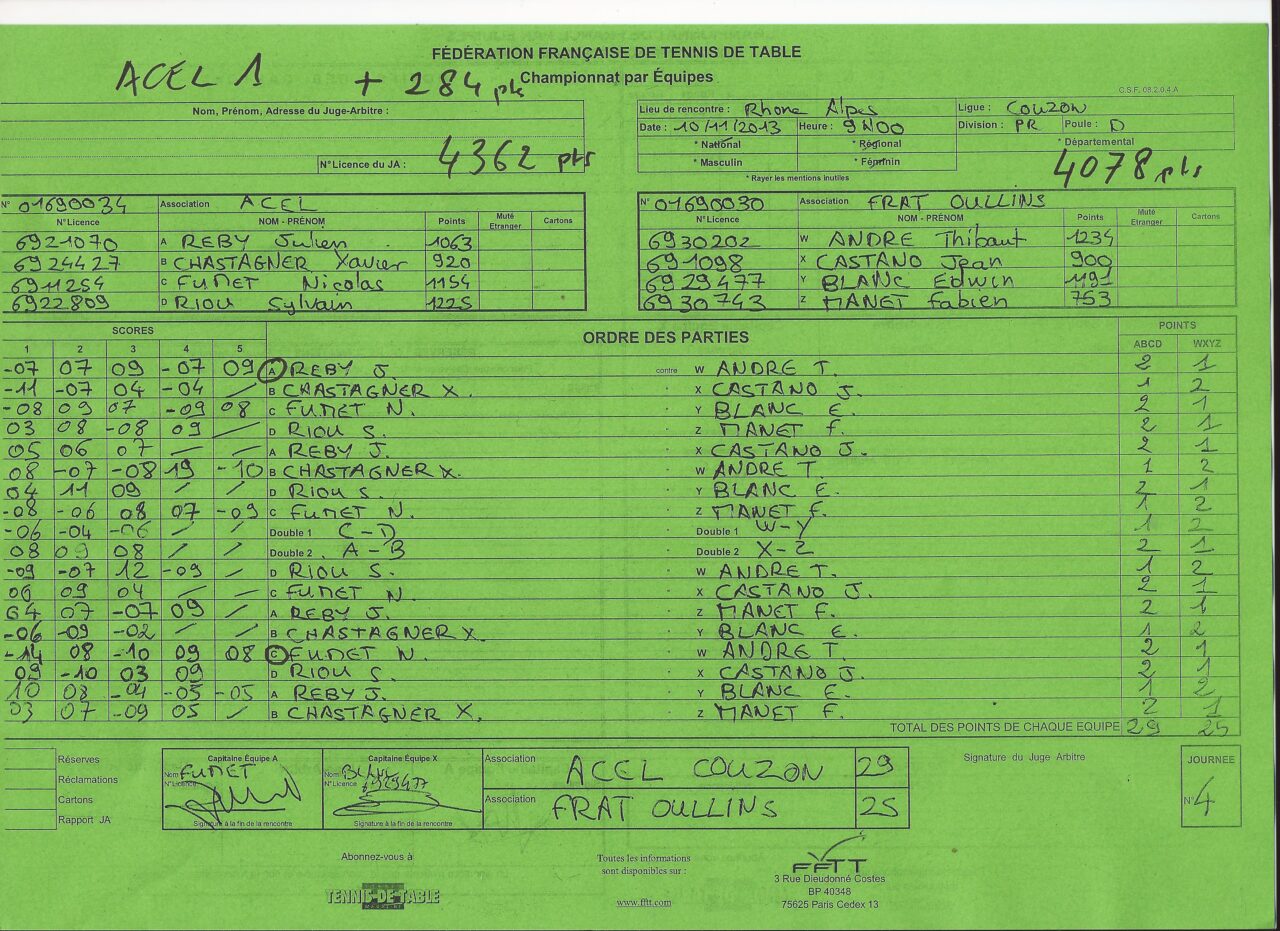 FÉDÉRATION FRANÇAISE DE TENNIS DE TABLE
ACEL 1 + 284 pts
Championnat par Équipes
C.S.F. 08.2.0.4.A
Nom, Prénom, Adresse du Juge-Arbitre :
N°Licence du JA : 4362 pts
Lieu de rencontre : Rhone Alpes Ligue : COUZON
Date : 10/11/2013 Heure : 9H00 Division : PR Poule : D
* National * Régional * Départemental
* Masculin * Féminin
* Rayer les mentions inutiles
4078 pts
N° 01690034 Association ACEL
N°Licence NOM - PRÉNOM Points Muté Etranger Cartons
6921070 A REBY Julien 1063
6924427 B CHASTAGNER Xavier 920
6911254 C FUMET Nicolas 1154
6922809 D RIOU Sylvain 1225
N° 01690030 Association FRAT OULLINS
N°Licence NOM - PRÉNOM Points Muté Etranger Cartons
6930202 W ANDRE Thibaut 1234
691098 X CASTANO Jean 900
6929477 Y BLANC Edwin 1191
6930743 Z MANET Fabien 753
SCORES ORDRE DES PARTIES POINTS
1 2 3 4 5 ABCD WXYZ
-07 07 09 -07 09 A REBY J. contre W ANDRE T. 2 1
-11 -07 04 -04 / B CHASTAGNER X. X CASTANO J. 1 2
-08 09 07 -09 08 C FUMET N. Y BLANC E. 2 1
03 08 -08 09 / D RIOU S. Z MANET F. 2 1
05 06 07 / / A REBY J. X CASTANO J. 2 1
08 -07 -08 19 -10 B CHASTAGNER X. W ANDRE T. 1 2
04 11 09 / / D RIOU S. Y BLANC E. 2 1
-08 -06 08 07 -09 C FUMET N. Z MANET F. 1 2
-06 -04 -06 / / Double 1 C-D Double 1 W-Y 1 2
08 09 08 / / Double 2 . A-B Double 2 X-Z 2 1
-09 -07 12 -09 / D RIOU S. W ANDRE T. 1 2
06 09 04 / / C FUMET N. X CASTANO J. 2 1
04 07 -07 09 / A REBY J. Z MANET F. 2 1
-06 -09 -02 / / B CHASTAGNER X. Y BLANC E. 1 2
-14 08 -10 09 08 C FUMET N. W ANDRE T. 2 1
09 -10 03 09 D RIOU S. X CASTANO J. 2 1
10 08 -04 -05 -05 A REBY J. Y BLANC E. 1 2
03 07 -09 05 / B CHASTAGNER X. Z MANET F. 2 1
TOTAL DES POINTS DE CHAQUE EQUIPE 29 25
Réserves
Réclamations
Cartons
Rapport JA
Capitaine Équipe A
Nom FUMET
N°Licence
Signature à la fin de la rencontre
Capitaine Équipe X
Nom BLANC
N°Licence 6929477
Signature à la fin de la rencontre
Association ACEL COUZON 29
Association FRAT OULLINS 25
Signature du Juge Arbitre
JOURNEE
N° 4
Abonnez-vous à
TENNIS-DE-TABLE
Toutes les informations
sont disponibles sur :
www.fftt.com
FFTT
3 Rue Dieudonné Costes
BP 40348
75625 Paris Cedex 13